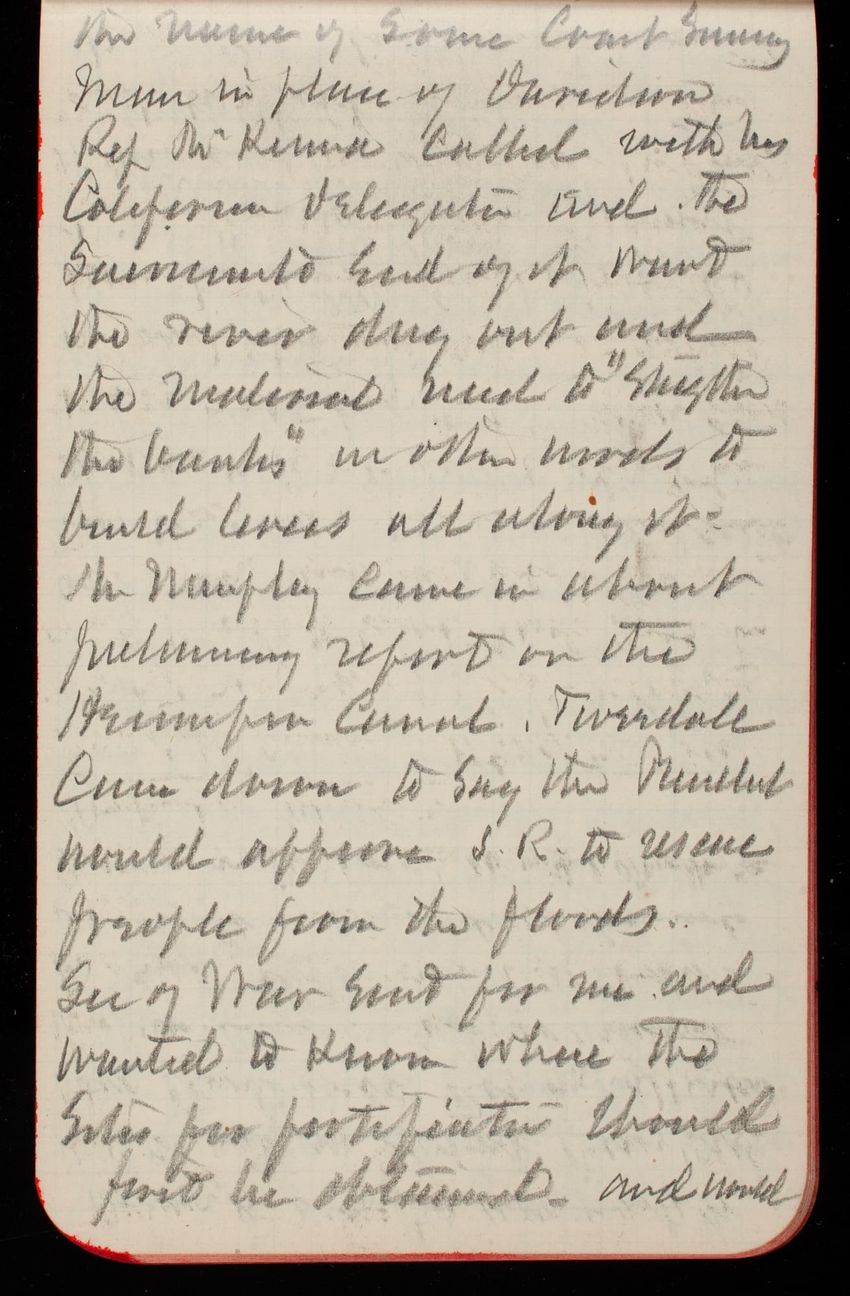 the name of some Coast Survey
man in place of Davidson
Rep McKenna called with his
California delegation and the
Sacramento end of it want
the river dug out and
the material used to "Strengthen
the banks" in other words to
build levees all along it-
Mr Murphy came in about
preliminary report on the
Hennepin Canal. Tweedale
Came down to say the President
would approve J. R. to rescue
people from the floods..
Sec of War sent for me and
wanted to know where the
Sites for fortification should
first be obtained - and would